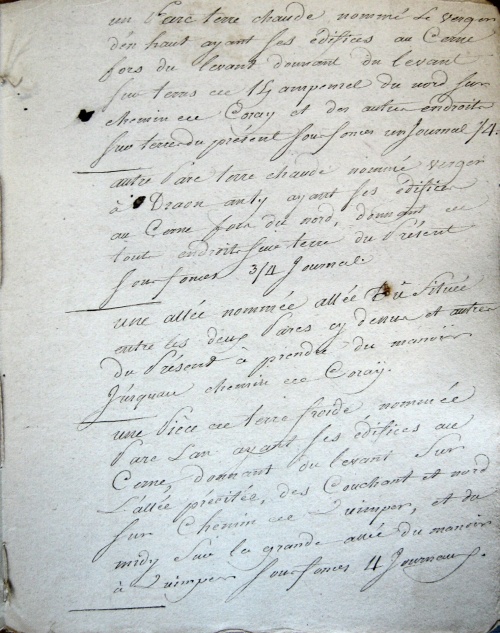 un Parc terre chaude nommé Le verger
den haut ayant ses édifices au Cerne
fors du levant donnant du levant
sur terres de du nord sur
chemin de Coray et des autres endroits
sur terre du présent sous fonces un Journal 1/4.
autre Parc terre chaude nommé verger
à Draon anty ayant ses édifices
au Cerne fors du nord, donnant de
tout endroits sur terre du Présent
sous fonces 3/4 Journal
une allée nommée allée Située
entre les deux Parcs cy denus et autres
du Présent à prendre du manoir
Jusquau chemin de Coray.
une Pièce de terre froide nommée
Parc Lan ayant ses édifices au
Cerne, donnant du levant Sur
L'allée précitée, des Couchant et nord
sur Chemin de Quimper, et du
midy Sur la grande allée du manoir
à Quimper sous fonces 4 Journaux.